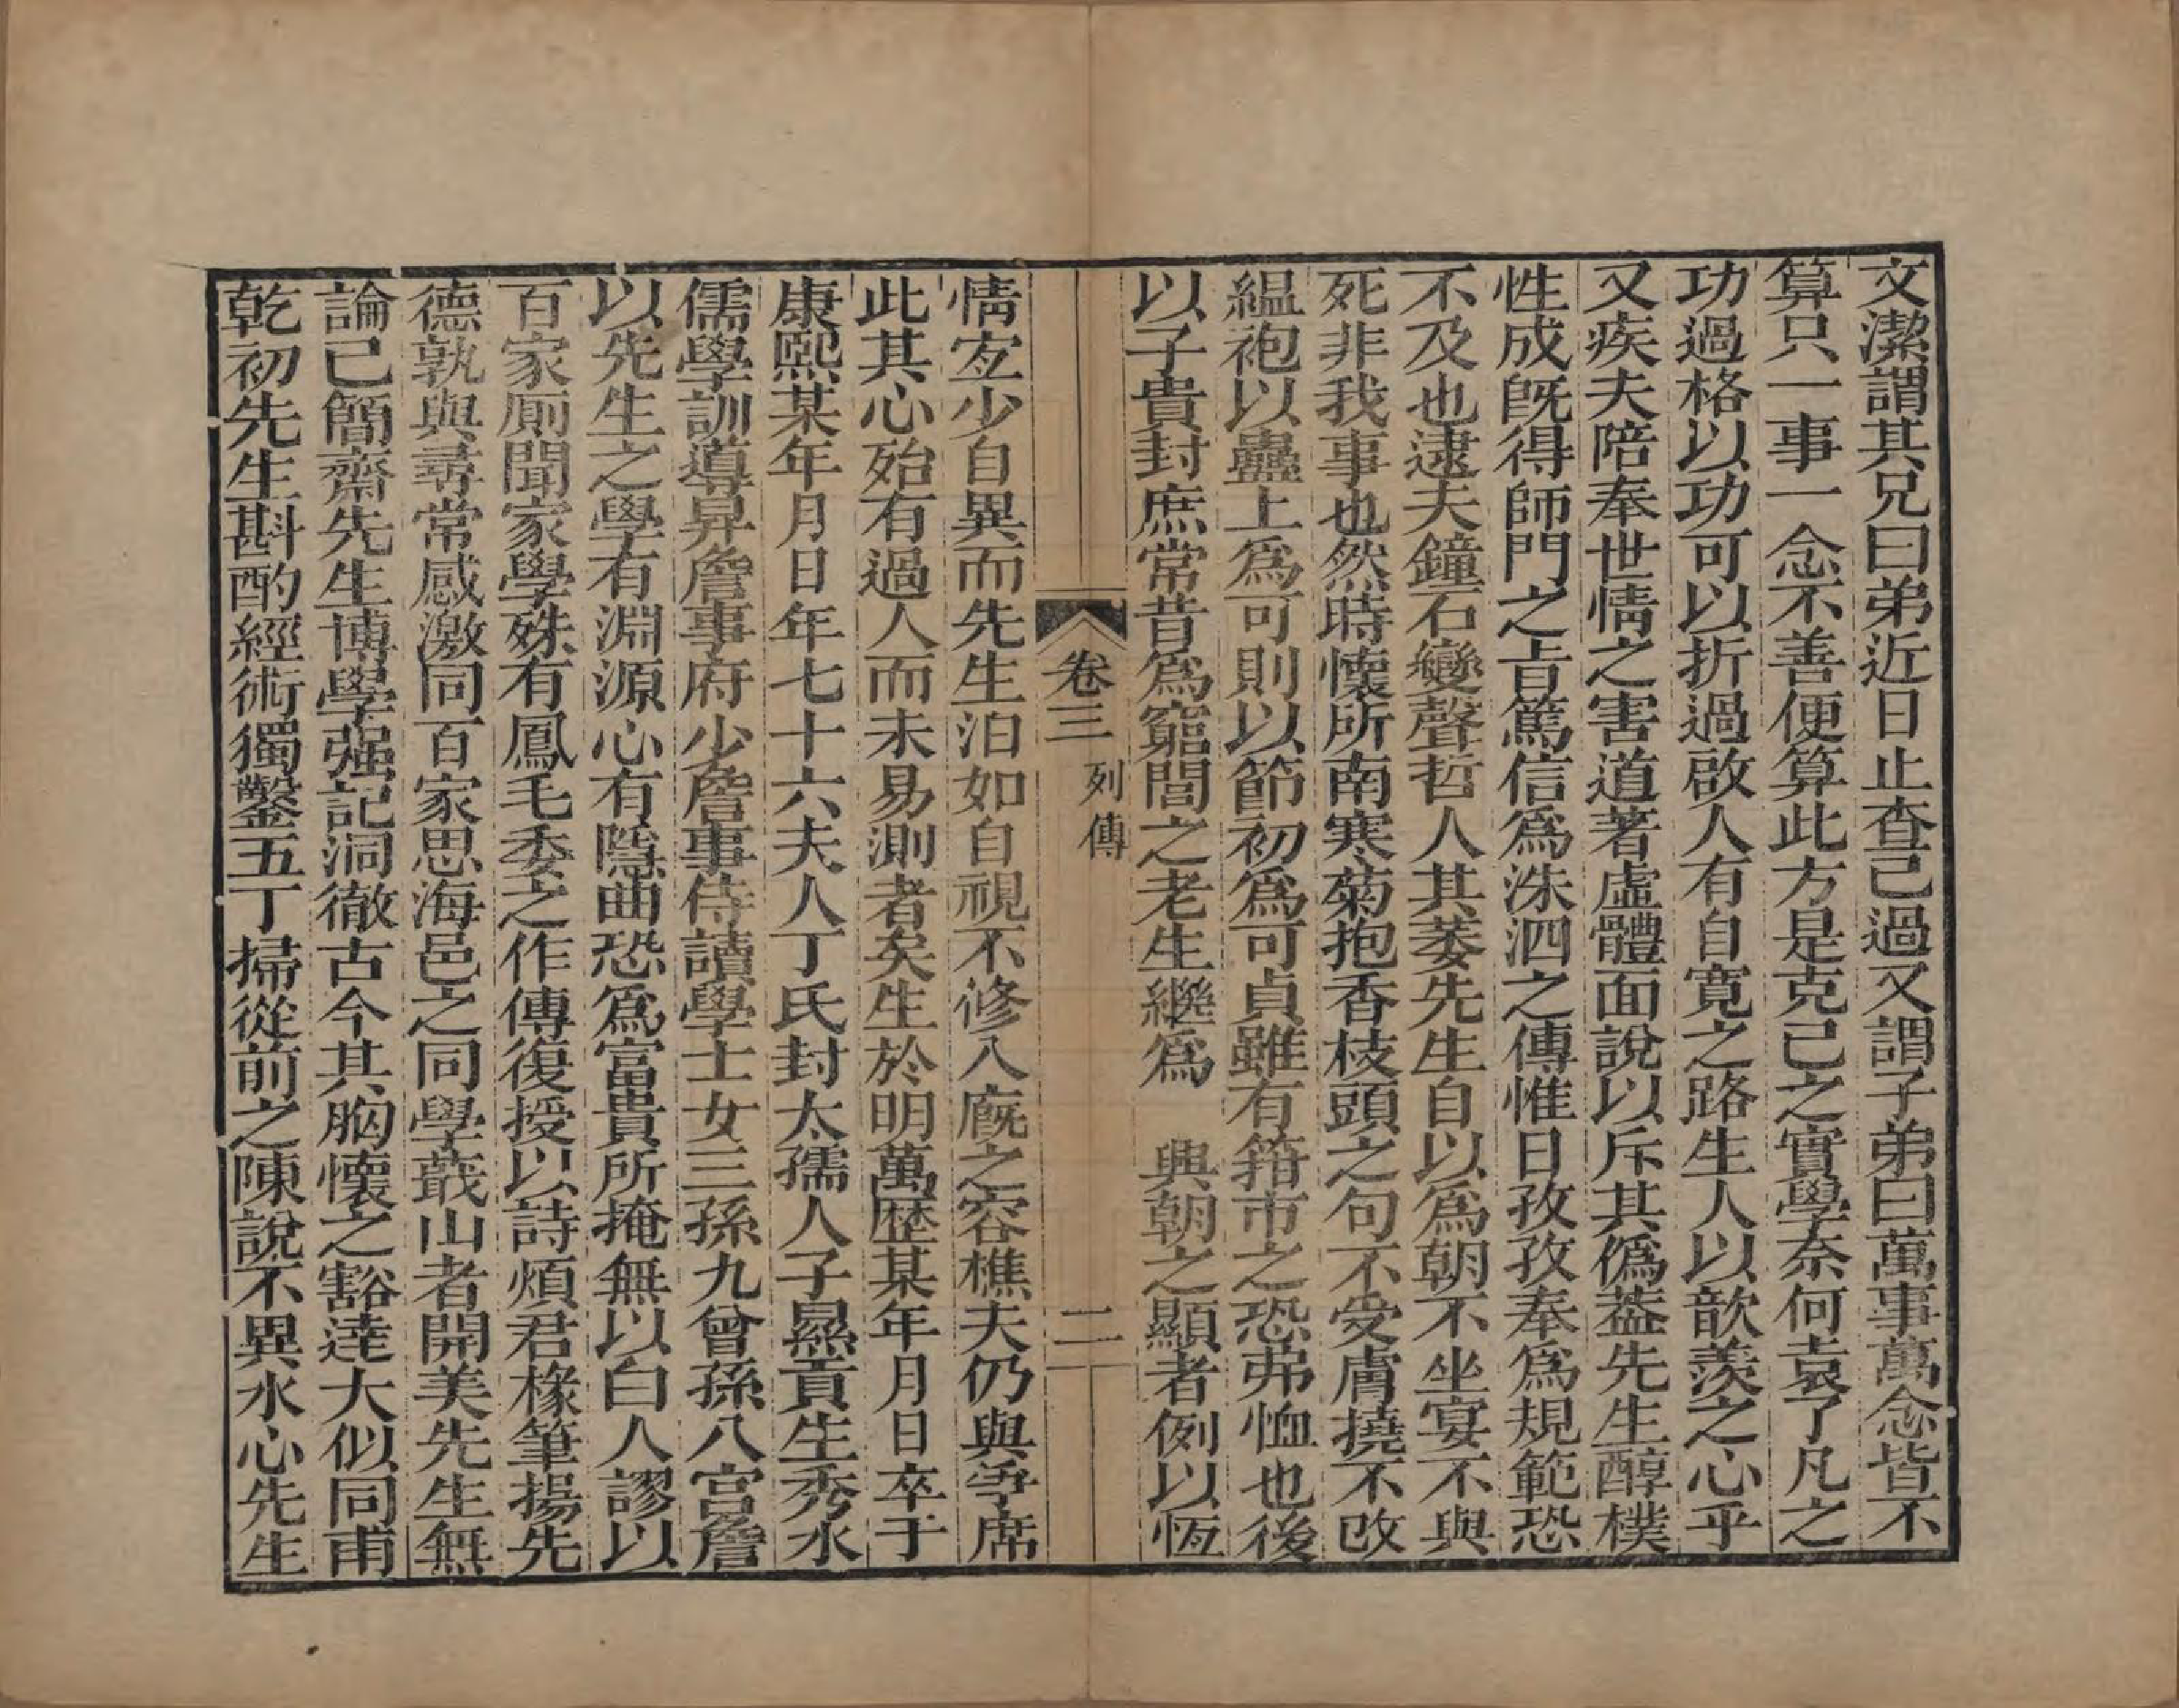 文潔謂其兄曰弟近日止查己過又謂子弟曰萬事萬念皆不
算只一事一念不善便算此方是克己之實學奈何袁了凡之
功過格以功可以折過啟人有自寬之路生人以歆羨之心乎
又疾夫陪奉世情之害道著虛體面說以斥其僞葢先生醇樸
性成旣得師門之㫖篤信爲洙泗之傳惟日孜孜奉爲規範恐
不及也逮夫鐘石變聲哲人其萎先生自以爲朝不坐宴不與
死非我事也然時懷所南寒菊抱香枝頭之句不受膚撓不改
縕袍以蠱上爲可則以節初爲可貞雖有籍市之恐弗恤也後
以子貴封庶常昔爲窮閻之老生繼爲　興朝之顯者例以恆
卷三 列傳 二
情㝎少自異而先生泊如自視不修入廐之容樵夫仍與爭席
此其心殆有過人而未易測者矣生於明萬歴某年月日卒于
康熙某年月日年七十六夫人丁氏封太孺人子㬎貢生秀水
儒學訓導昇詹事府少詹事侍讀學士女三孫九曾孫八宮詹
以先生之學有淵源心有隱曲恐爲富貴所掩無以白人謬以
百家厠聞家學殊有鳳毛委之作傳復授以詩煩君椽筆揚先
德孰與尋常感激同百家思海邑之同學蕺山者開美先生無
論已簡齋先生博學强記洞徹古今其胸懷之豁達大似同甫
乾初先生斟酌經術獨鑿五丁掃從前之陳說不異水心先生